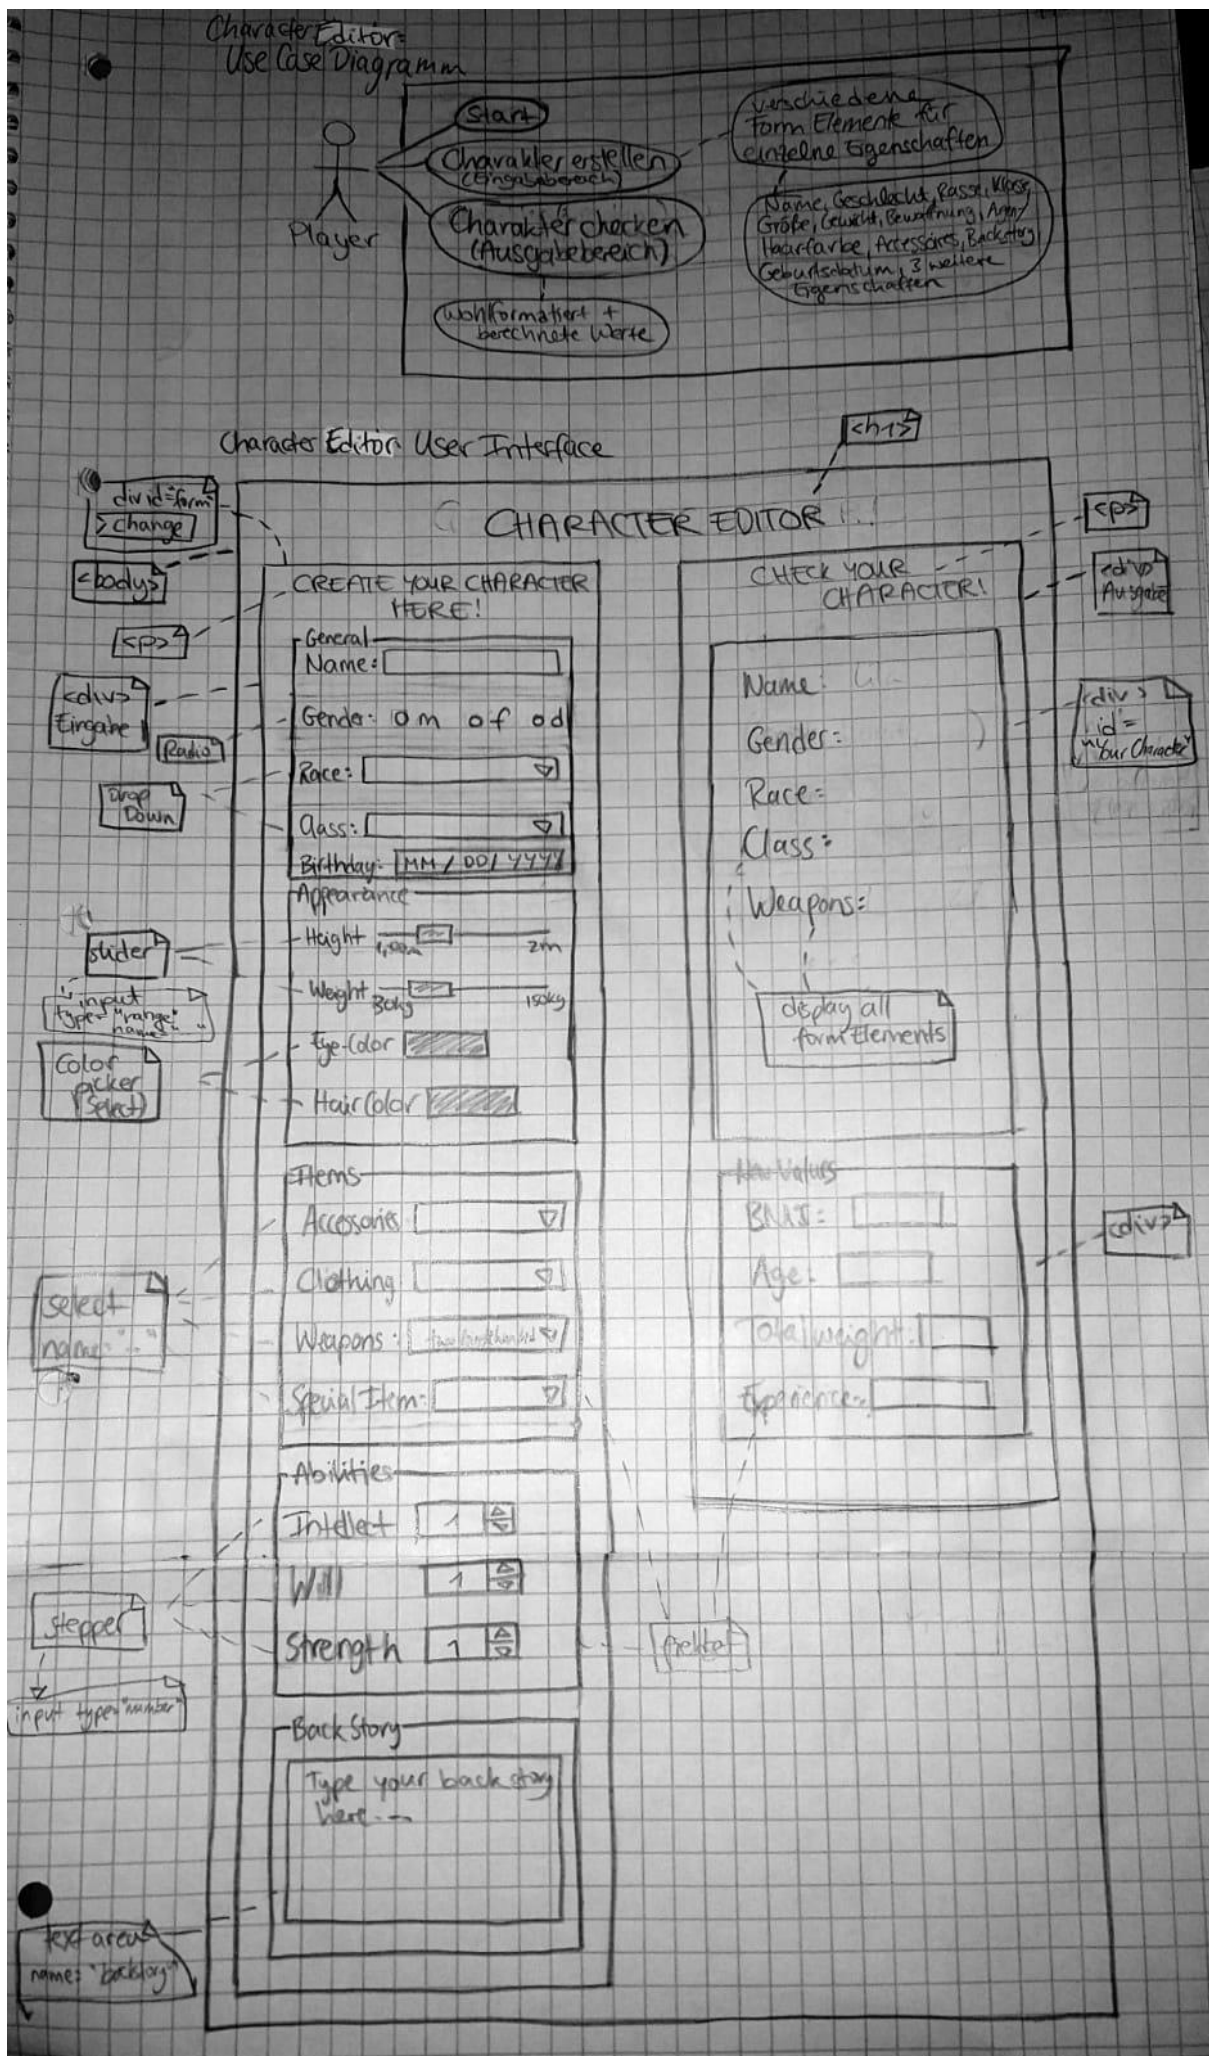 Character Editor:
Use Case Diagramm
Start
Charakter erstellen
(Eingabebereich)
Charakter checken
(Ausgabebereich)
Wohlformatiert +
berechnete Werte
Player
Verschiedene
Form Elemente für
einzelne Eigenschaften
Name, Geschlecht, Rasse, Klasse,
Größe, Gewicht, Bewaffnung, Augen/
Haarfarbe, Accessoires, Backstory,
Geburtsdatum, 3 weitere
Eigenschaften
Character Editor: User Interface
<h1>
div id="form"
> change
<body>
<p>
<div>
Eingabe
Radio
Drop
Down
slider
input
type="range"
name=" "
Color
picker
(Select)
select
name=" "
stepper
input type="number"
text area
name: "backstory"
CHARACTER EDITOR
CREATE YOUR CHARACTER
HERE!
General
Name:
Gender: o m o f o d
Race:
Class:
Birthday: MM / DD / YYYY
Appearance
Height
2m
Weight 30kg 150kg
Eye-Color
Hair Color
Items
Accessories
Clothing
Weapons:
Special Item:
Abilities
Intellect 1
Will 1
Strength 1
Back Story
Type your back story
here...
CHECK YOUR
CHARACTER!
Name:
Gender:
Race:
Class:
Weapons:
display all
form Elements
New Values
BMI:
Age:
Total weight:
Experience:
<p>
<div>
Ausgabe
<div>
id=
"Your Character"
<div>